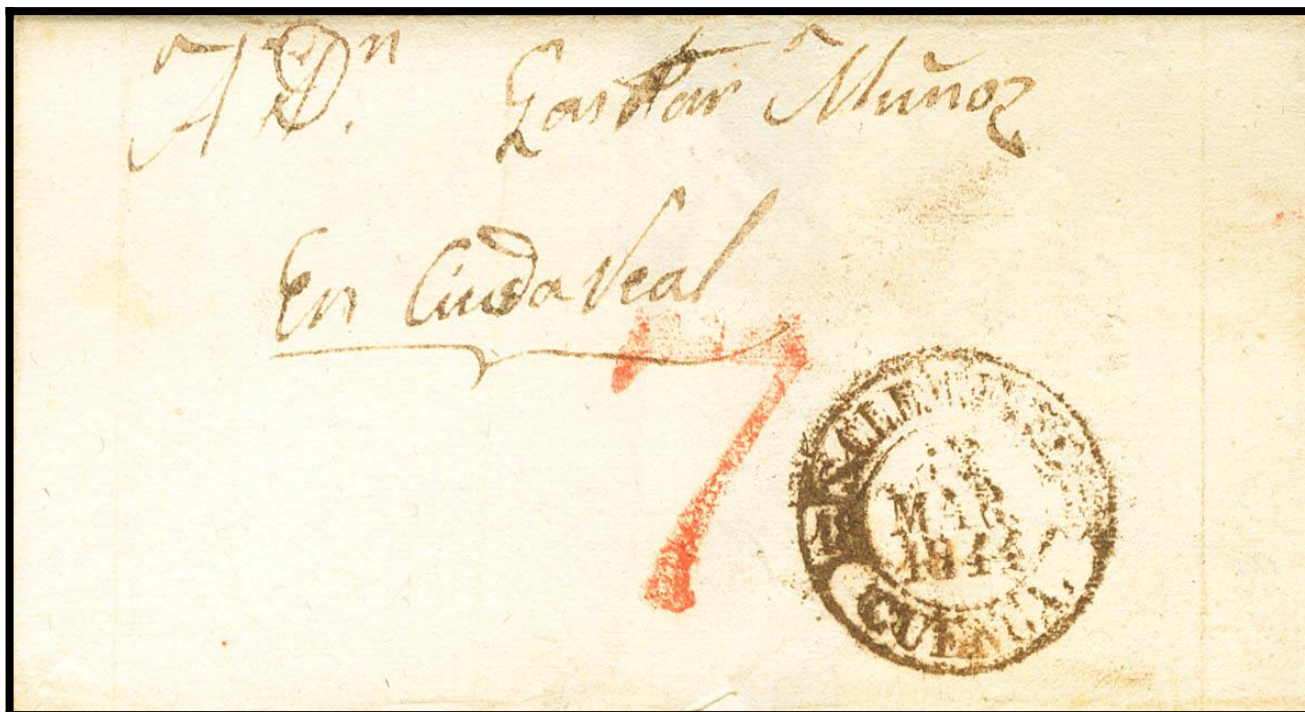 A Dn. Gaspar Muñoz
En Ciuda Real
7
MAR
1844
CUENCA.